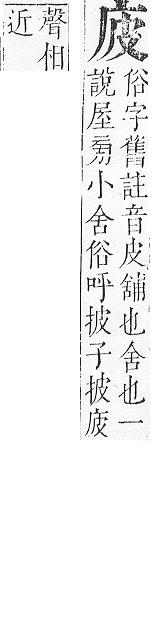 庋
俗字舊註音皮舖也舍也一
說屋旁小舍俗呼披子披庋
聲相
近